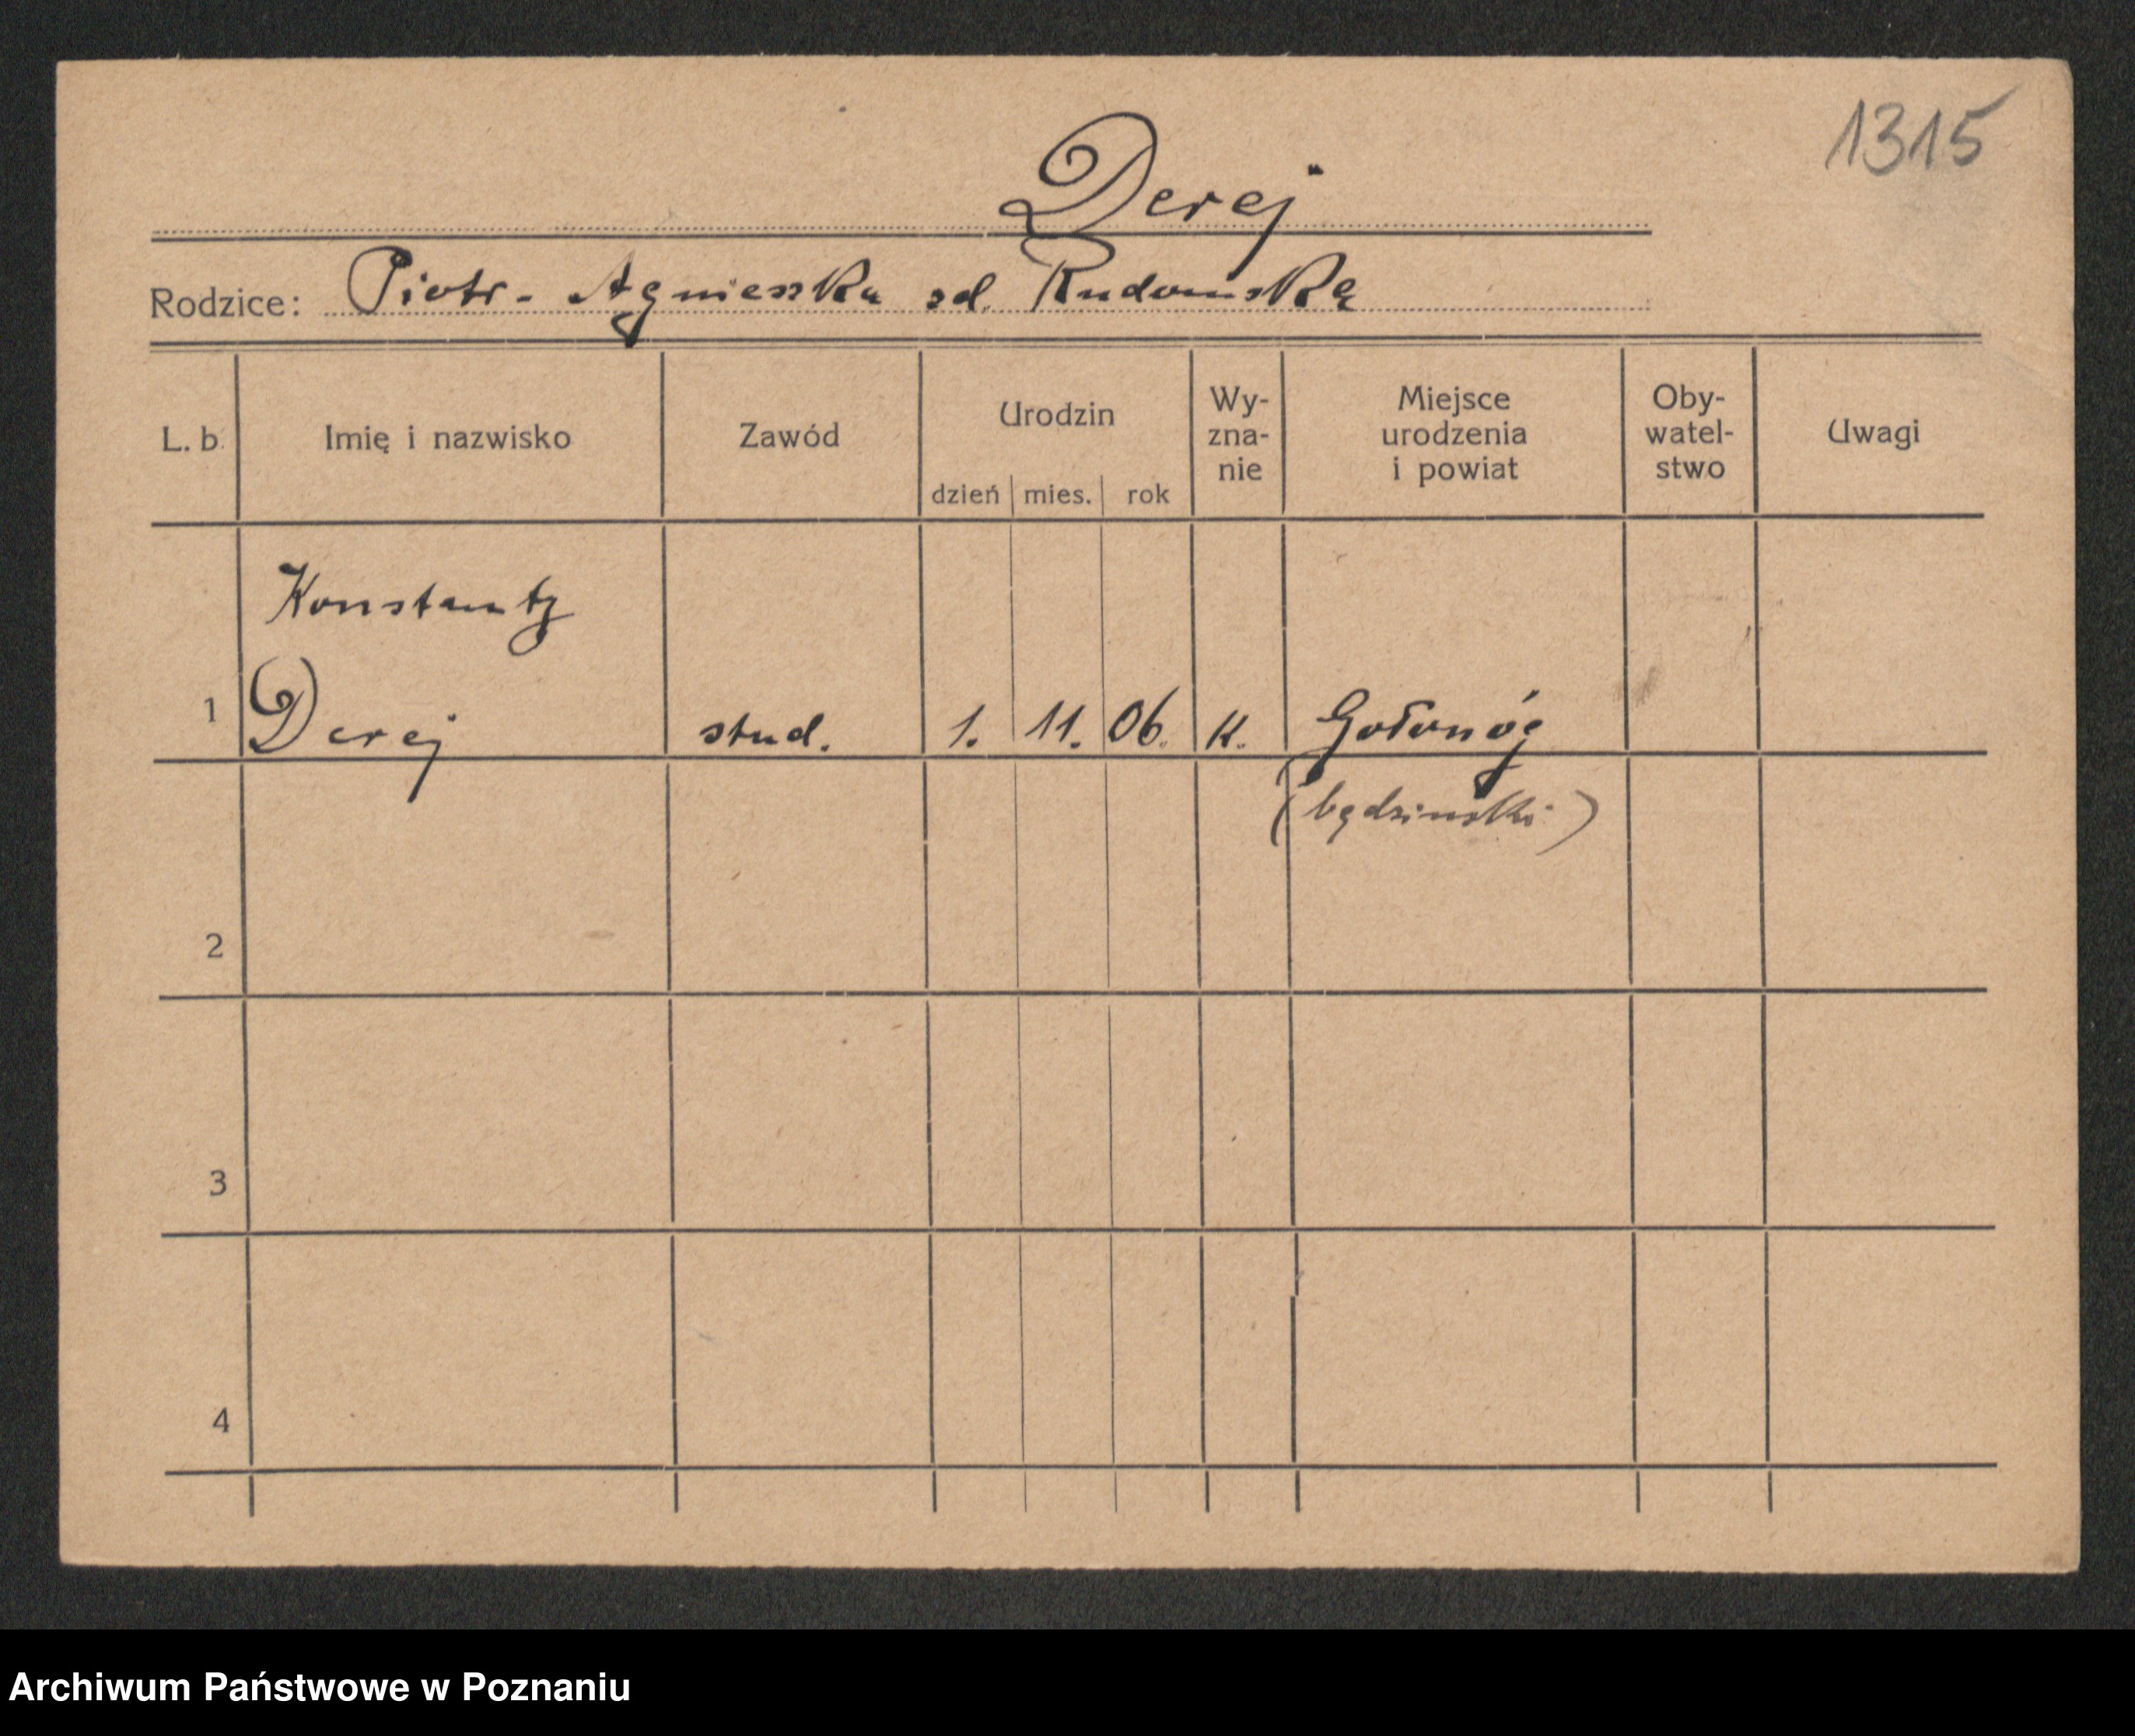 1315
Derej
Rodzice: Piotr - Agnieszka zd. Rudomska
L. b. Imię i nazwisko Zawód Urodzin dzień mies. rok Wy-zna-nie Miejsce urodzenia i powiat Oby-watel-stwo Uwagi
Konstanty
1 Derej stud. 1. 11. 06. K. Gołonóg
(będzinski)
2
3
4
Archiwum Państwowe w Poznaniu